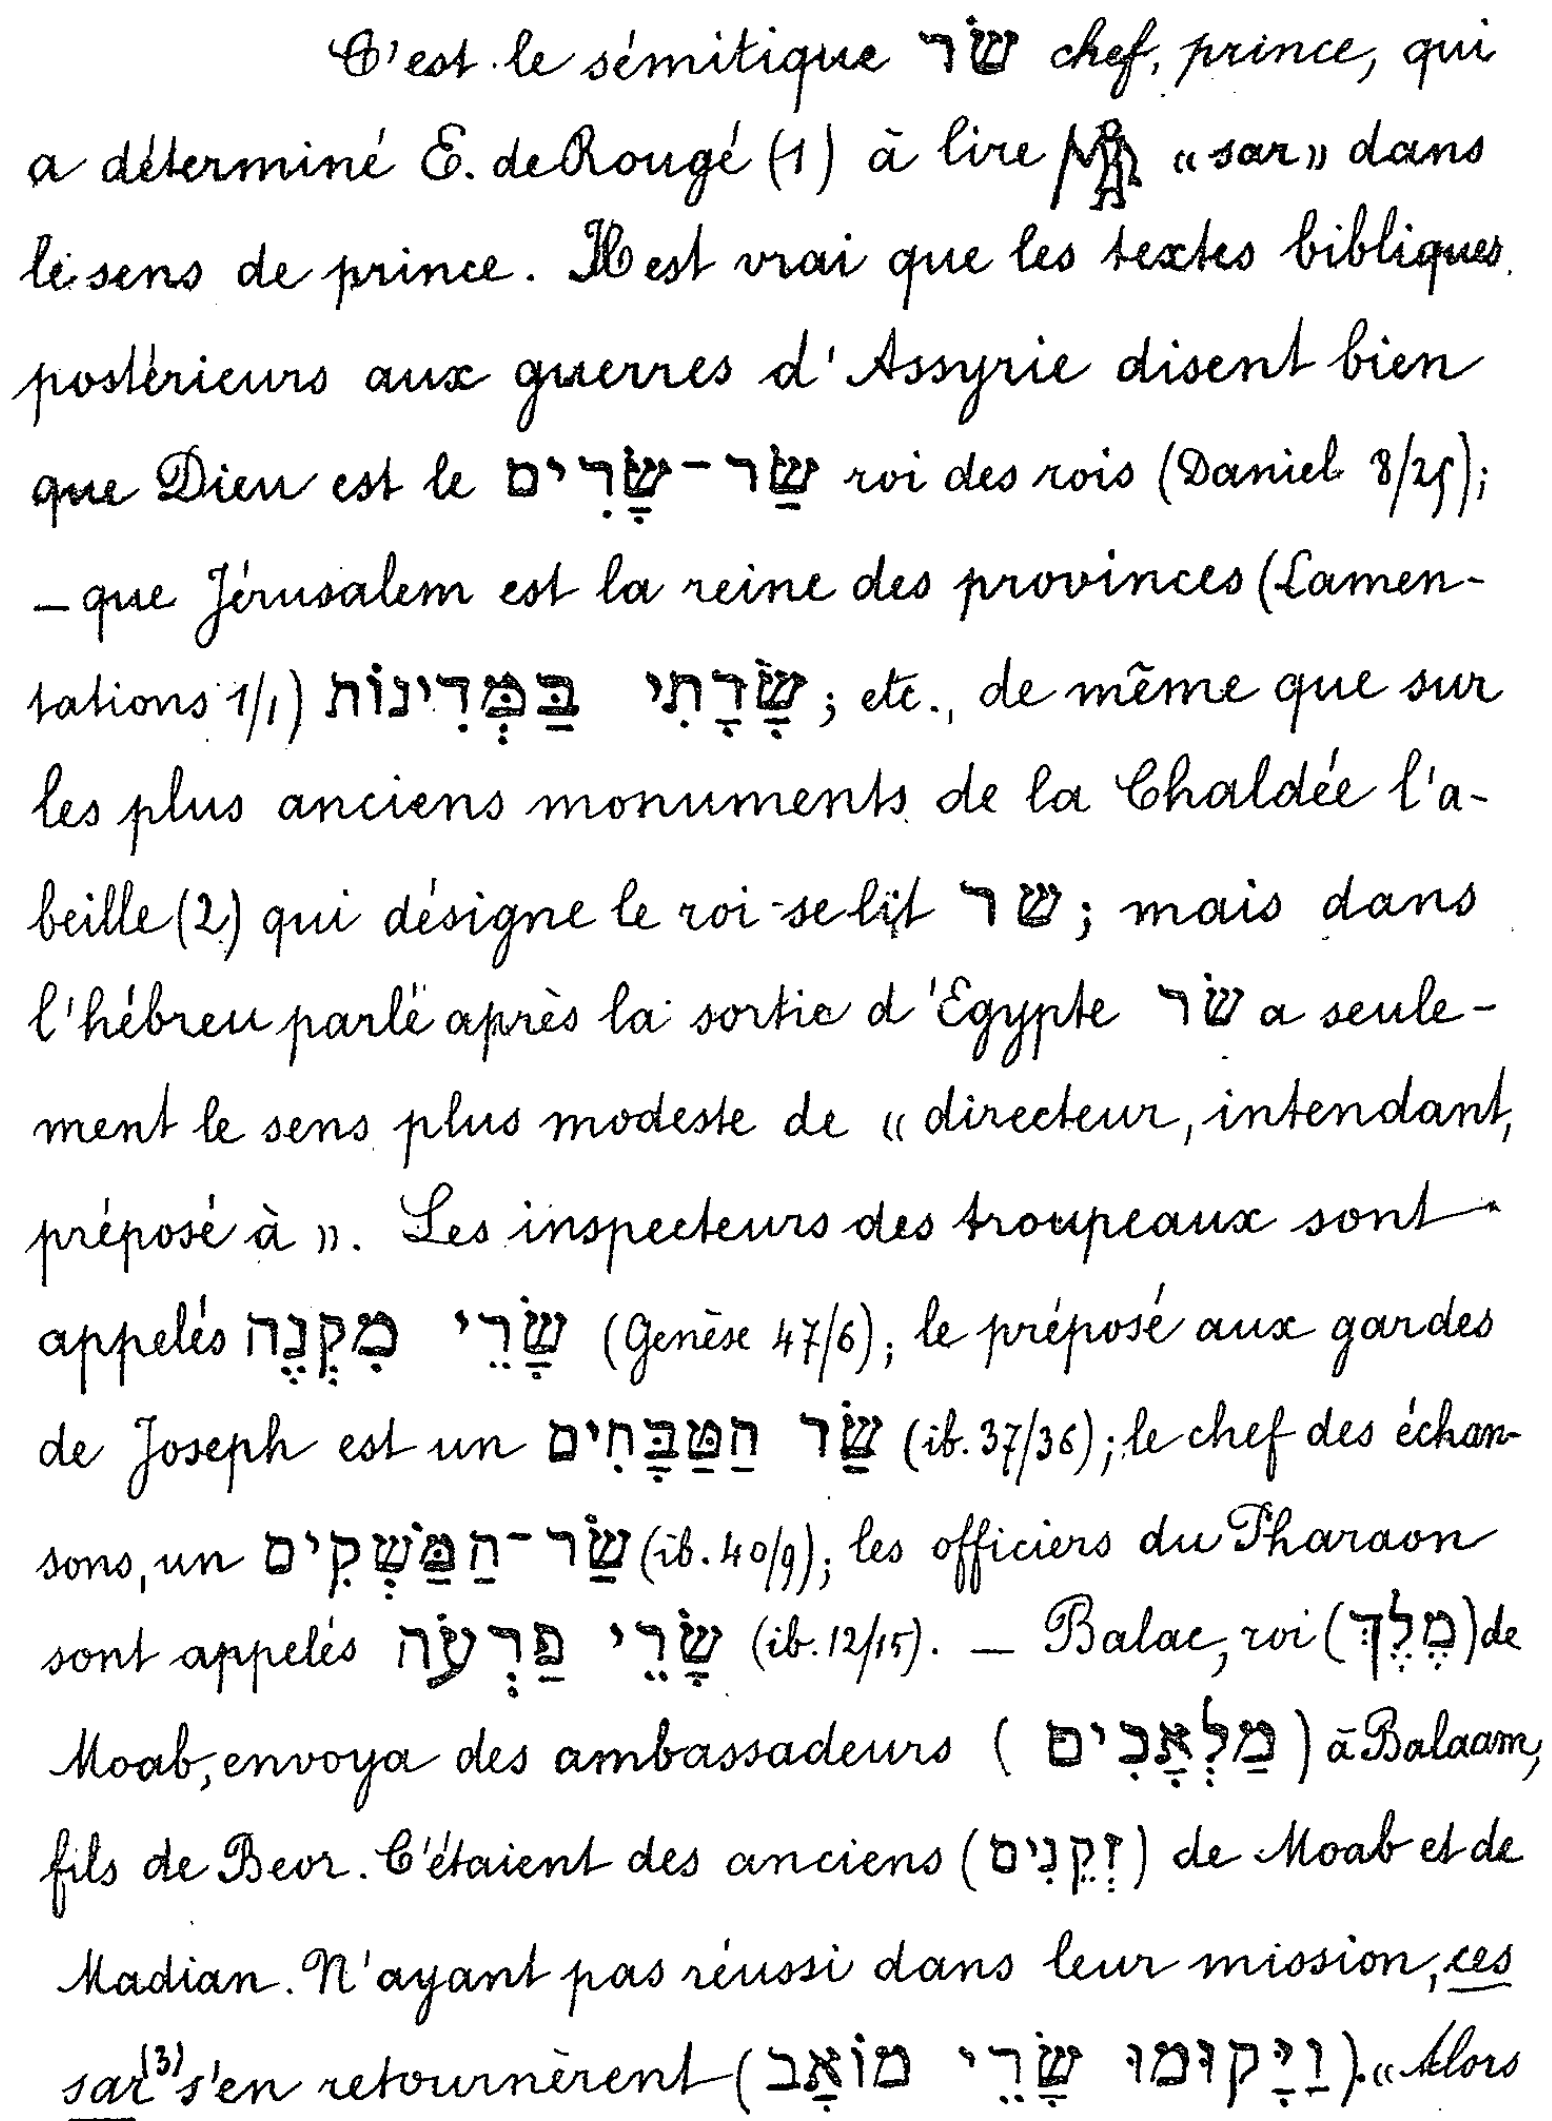 C'est le sémitique שׂר chef, prince, qui
a déterminé E. de Rougé (1) à lire « sar » dans
le sens de prince. Il est vrai que les textes bibliques
postérieurs aux guerres d'Assyrie disent bien
que Dieu est le שַׂר־שָׂרִים roi des rois (Daniel 8/25);
– que Jérusalem est la reine des provinces (Lamen-
tations 1/1) שָׂרָתִי בַּמְּדִינוֹת ; etc., de même que sur
les plus anciens monuments de la Chaldée l'a-
beille (2) qui désigne le roi se lit שר ; mais dans
l'hébreu parlé après la sortie d'Egypte שׂר a seule-
ment le sens plus modeste de « directeur, intendant,
préposé à ». Les inspecteurs des troupeaux sont
appelés שָׂרֵי מִקְנֶה (Genèse 47/6); le préposé aux gardes
de Joseph est un שַׂר הַטַּבָּחִים (ib. 37/36); le chef des échan-
sons, un שַׂר־הַמַּשְׁקִים (ib. 40/9); les officiers du Pharaon
sont appelés שָׂרֵי פַרְעֹה (ib. 12/15). – Balac, roi (מֶלֶךְ) de
Moab, envoya des ambassadeurs (מַלְאָכִים) à Balaam,
fils de Beor. C'étaient des anciens (זְקֵנִים) de Moab et de
Madian. N'ayant pas réussi dans leur mission, ces
sar (3) s'en retournèrent (וַיָּקוּמוּ שָׂרֵי מוֹאָב). « Alors